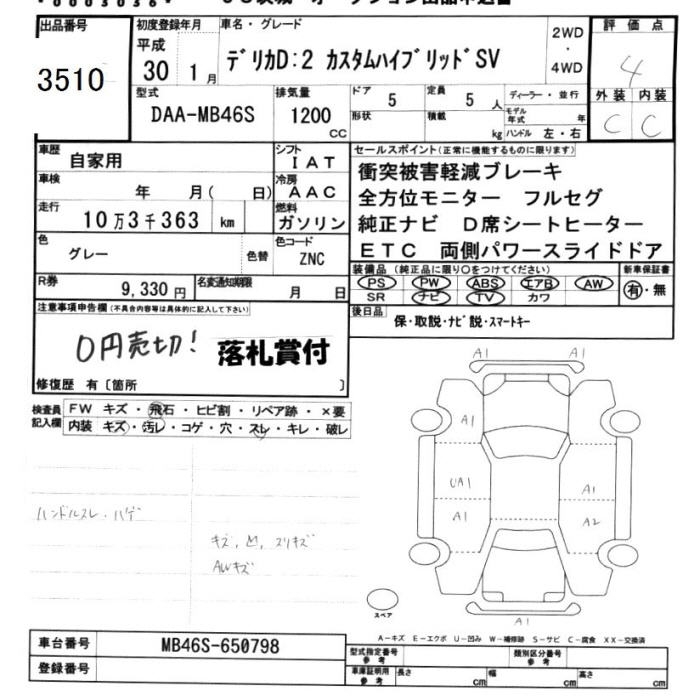 出品番号 初度登録年月 車名・グレード 2WD・4WD 評価点
3510 平成 30 1月 デリカD:2 カスタムハイブリッドSV 4
型式 排気量 ドア 5 定員 5人 ディーラー・並行 外装 内装
DAA-MB46S 1200 CC 形状 積載 kg モデル年式 年 ハンドル 左・右 C C
車歴 自家用 シフト IAT セールスポイント(正常に機能するものに限ります)
車検 年 月( 日) 冷房 AAC 衝突被害軽減ブレーキ
全方位モニター フルセグ
走行 10万3千363 km 燃料 ガソリン 純正ナビ D席シートヒーター
色 グレー 色替 色コード ZNC ETC 両側パワースライドドア
R券 9,330円 名変通知期限 月 日 装備品(純正品に限り○をつけてください) 新車保証書
PS PW ABS エアB AW 有・無
SR ナビ TV カワ
注意事項申告欄(不具合内容等は具体的に記入して下さい) 後日品
保・取説・ナビ説・スマートキー
0円売切! 落札賞付
修復歴 有〔箇所 〕
検査員記入欄 FW キズ・飛石・ヒビ割・リペア跡・×要
内装 キズ・汚レ・コゲ・穴・スレ・キレ・破レ
A1
A1
A1
UA1 A1
A1 A2
ハンドルスレ・ハゲ
キズ, 凹, スリキズ
AWキズ
スペア
A1
A-キズ E-エクボ U-凹み W-補修跡 S-サビ C-腐食 XX-交換済
車台番号 MB46S-650798
登録番号
型式指定番号 参考 類別区分番号 参考
車庫証明用 参考 長さ cm 幅 cm 高さ cm